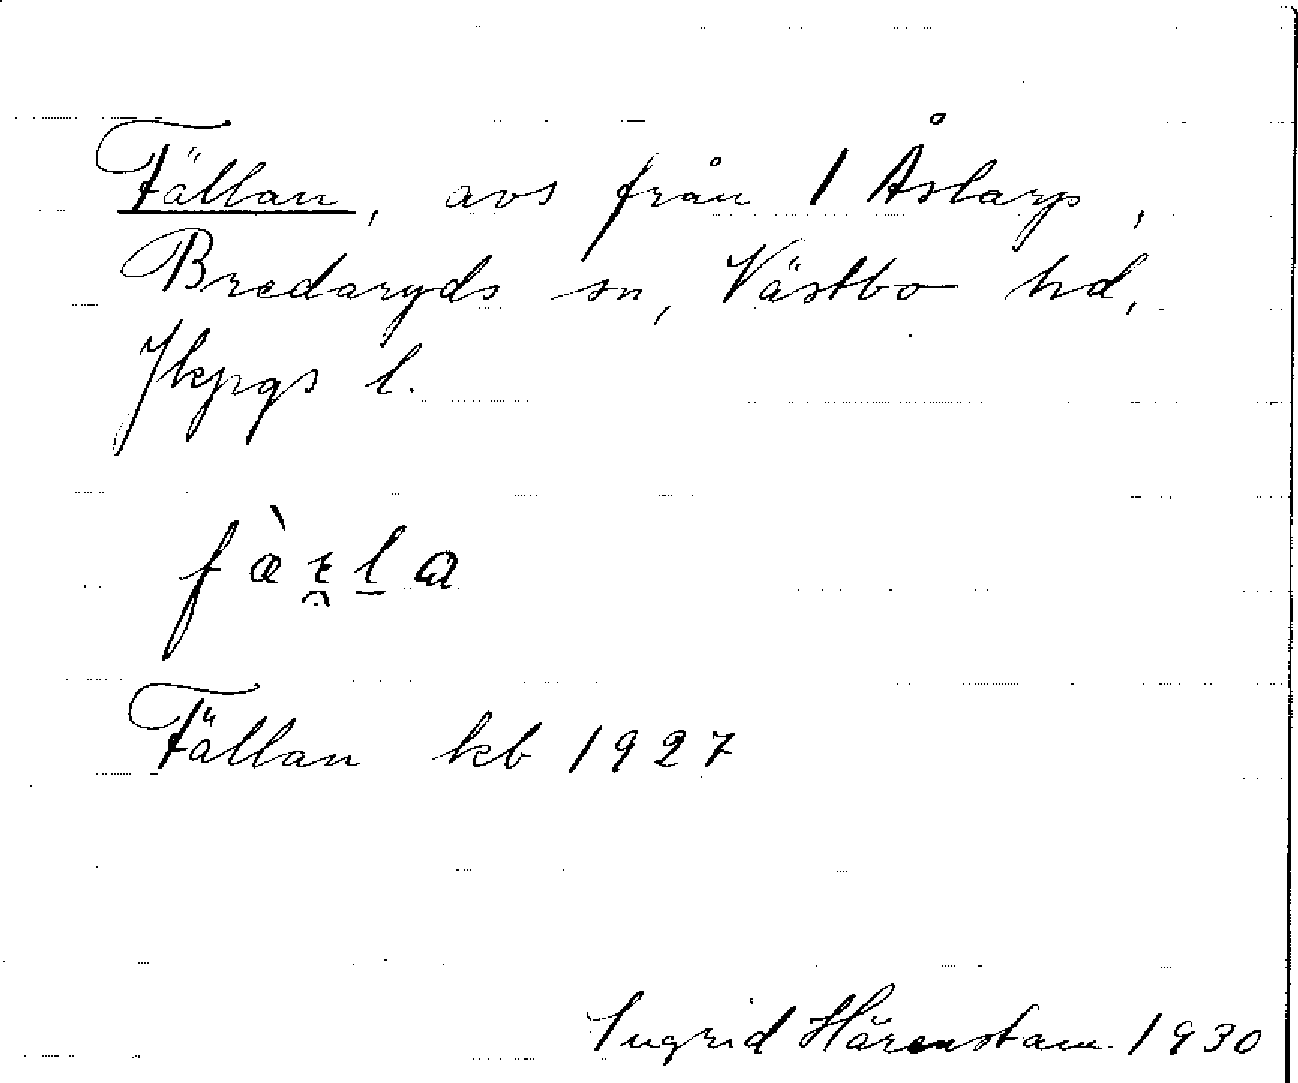 Fällan, avs från 1 Åslarp,
Bredaryds sn, Västbo hd,
Jkpgs l.
Fällan kb 1927
Ingrid Härenstam 1930